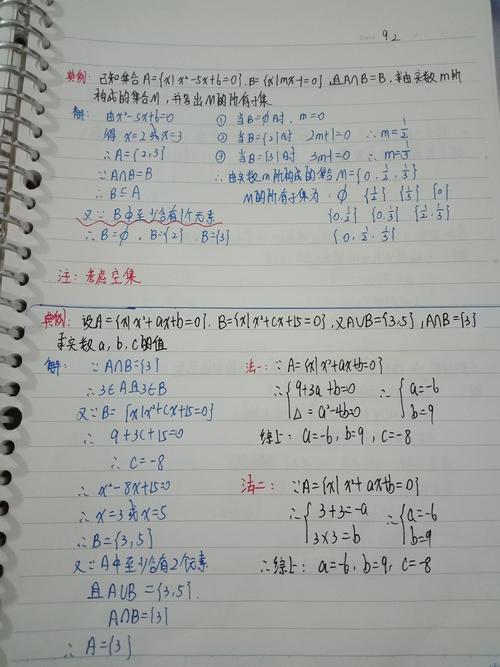 9.2
典例: 已知集合A={x|x²-5x+6=0}. B={x|mx-1=0}, 且A∩B=B, 求由实数m所
构成的集合M, 并写出M的所有子集
解: 由x²-5x+6=0
得 x=2或x=3
∴A={2,3}
∵A∩B=B
∴B⊆A
又∵B中至少含有1个元素
∴B=∅, B={2} B={3}
① 当B=∅时, m=0
② 当B={2}时 2m-1=0 ∴m=1/2
③ 当B={3}时 3m-1=0 ∴m=1/3
∴由实数m所构成的集合M={0, 1/2, 1/3}
M的所有子集为: ∅ {1/2} {1/3} {0}
{0,1/2} {0,1/3} {1/2,1/3}
{0, 1/2, 1/3}
注: 考虑空集
典例: 设A={x|x²+ax+b=0}. B={x|x²+cx+15=0}, 又A∪B={3,5}, A∩B={3}
求实数a, b, c的值
解: ∵A∩B={3}
∴3∈A且3∈B
又∵B={x|x²+cx+15=0}
∴9+3c+15=0
∴c=-8
∴x²-8x+15=0
∴x=3或x=5
∴B={3,5}
又∵A中至少含有2个元素
且A∪B={3,5}.
A∩B={3}
∴A={3}
法一: ∵A={x|x²+ax+b=0}
∴{9+3a+b=0 ∴{a=-6
△=a²-4b=0 b=9
综上: a=-6, b=9, c=-8
法二: ∵A={x|x²+ax+b=0}
∴{3+3=-a ∴{a=-6
3×3=b b=9
∴综上: a=-6, b=9, c=-8